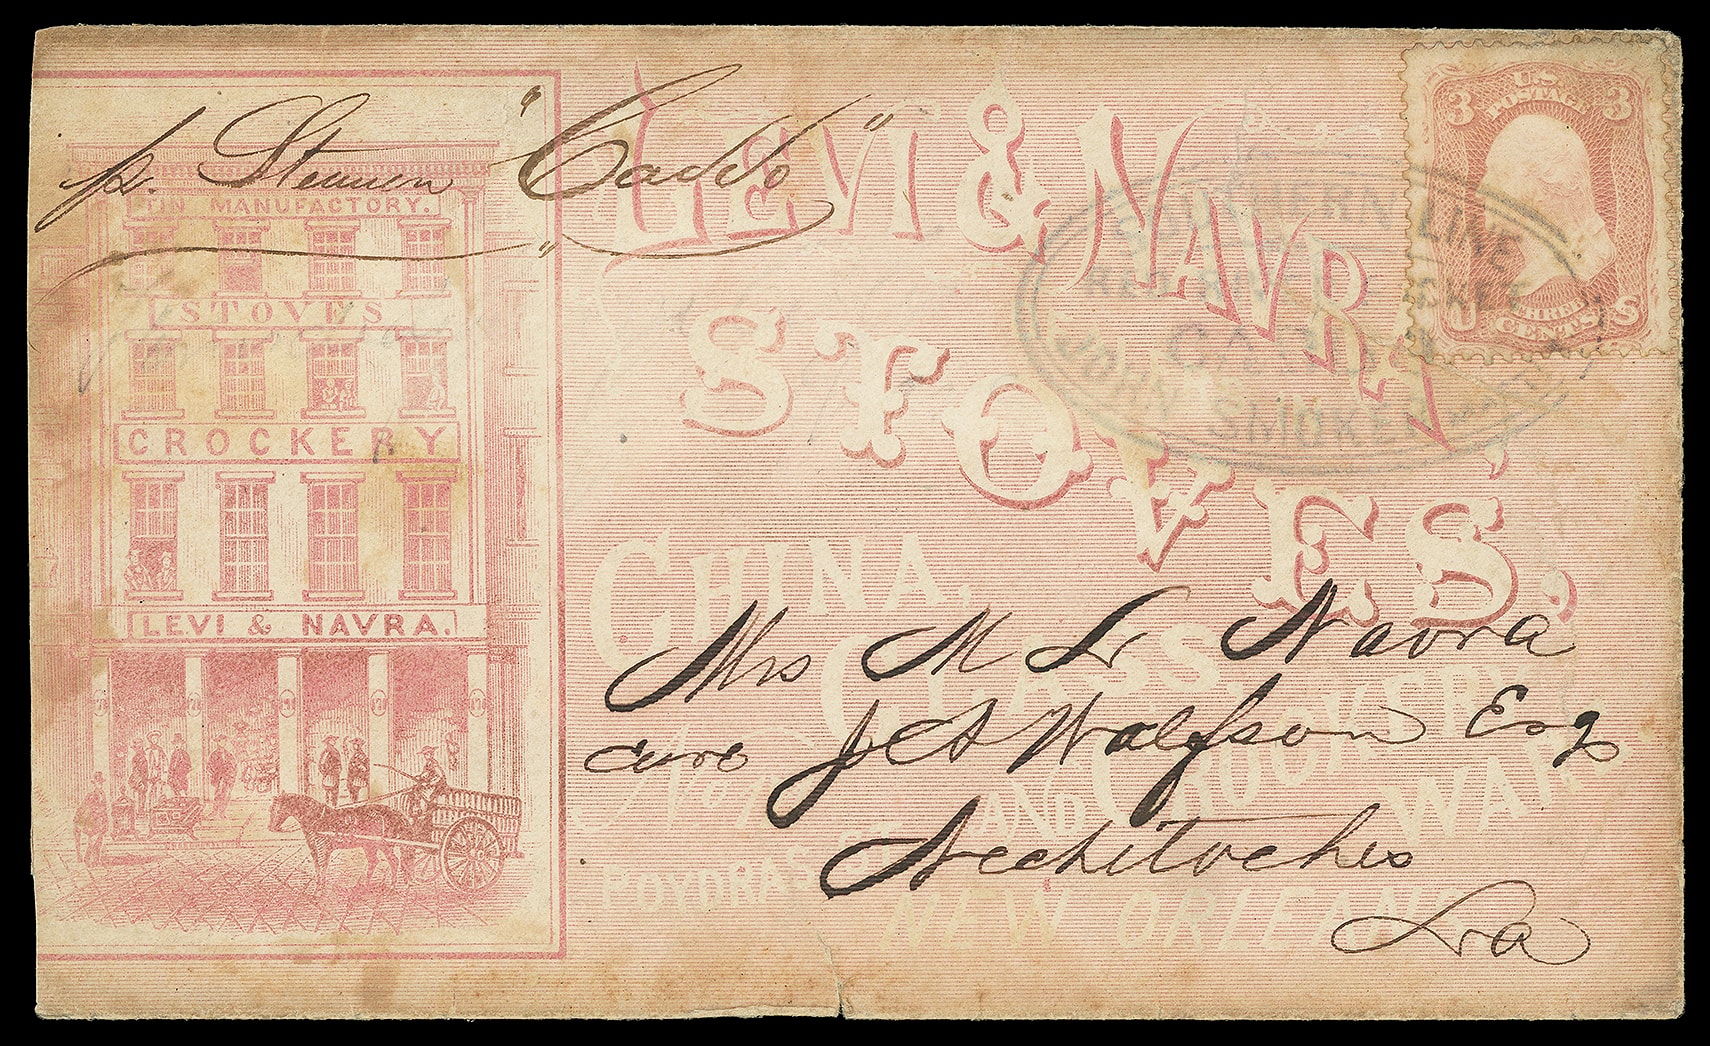 p. Steamer "Caddo"
TIN MANUFACTORY.
STOVES
CROCKERY
LEVI & NAVRA.
LEVI & NAVRA,
STOVES,
CHINA,
GLASS,
AND CROCKERY
WARE
No.
POYDRAS
NEW ORLEANS
SOUTHERN LINE
RED RIVER
CADDO
JOHN SMOKER MASTER
3 U.S. 3
POSTAGE
THREE
CENTS
U S
Mrs M L Navra
care J C A Wolfson Esq
Natchitoches
La